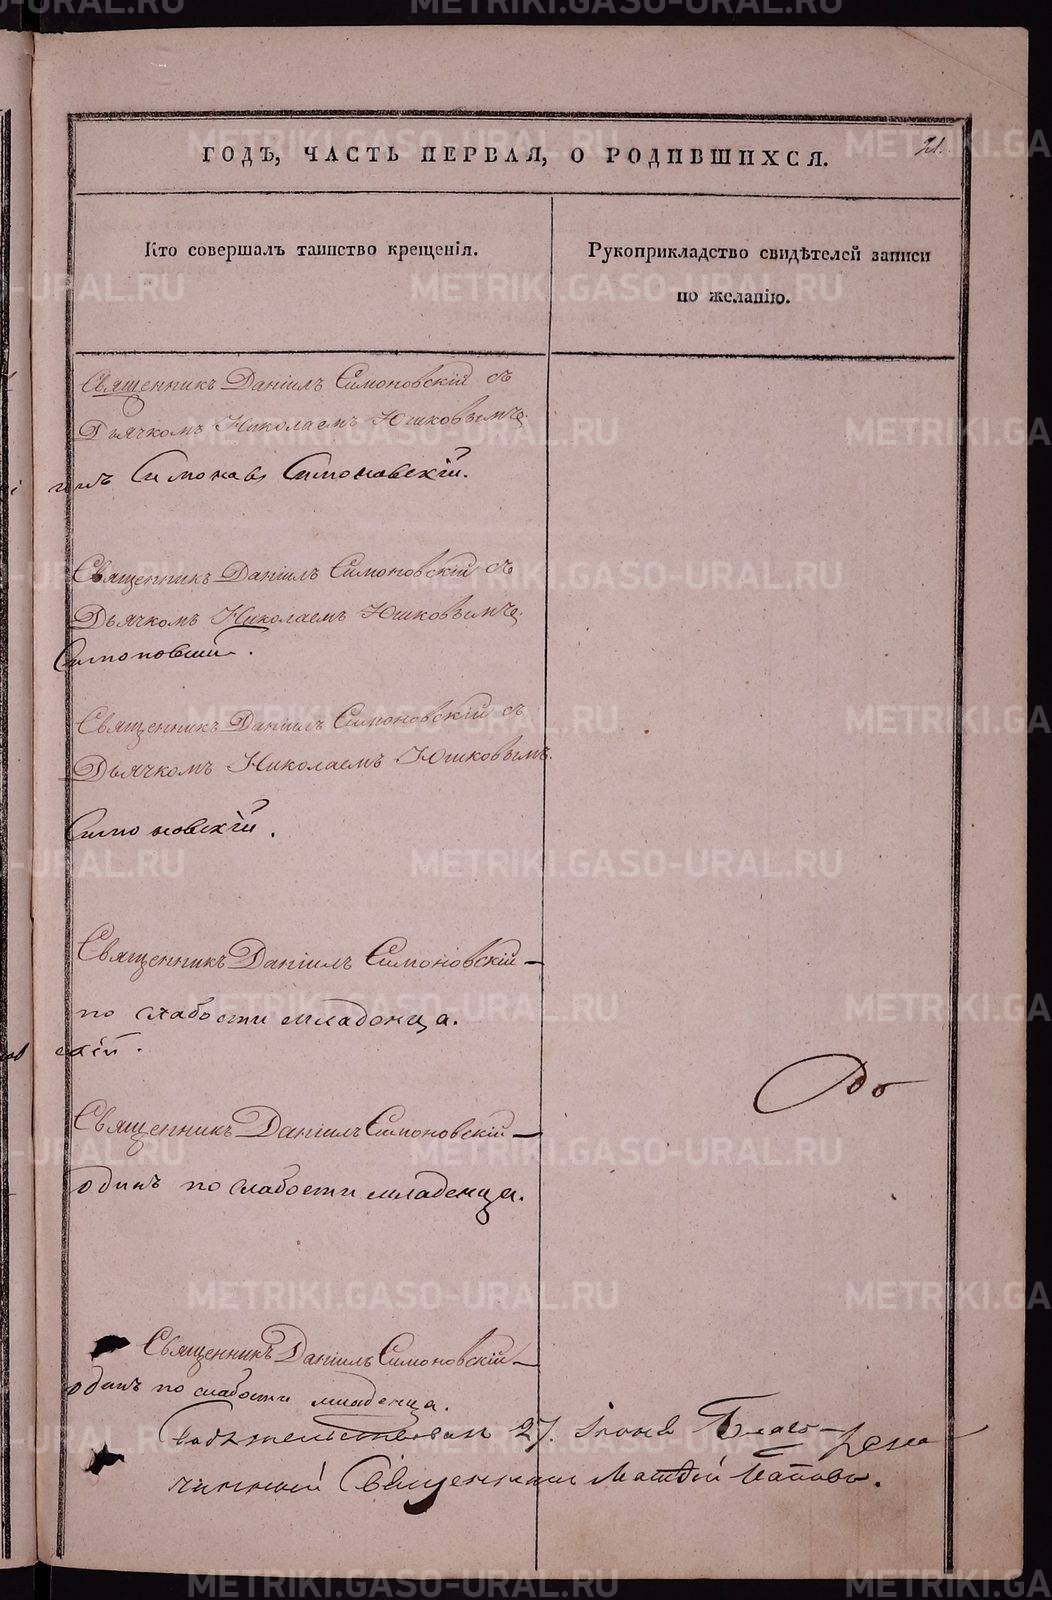 METRIKI.GASO-URAL.RU
ГОДЪ, ЧАСТЬ ПЕРВАЯ, О РОДИВШИХСЯ.
21.
Кто совершалъ таинство крещенія.
Рукоприкладство свидѣтелей записи
по желанію.
Священникъ Даніилъ Симоновскій съ
Дьячкомъ Николаемъ Юшковымъ
Симоновскій.
Священникъ Даніилъ Симоновскій съ
Дьячкомъ Николаемъ Юшковымъ
Симоновскій.
Священникъ Даніилъ Симоновскій съ
Дьячкомъ Николаемъ Юшковымъ.
Симоновскій.
Священникъ Даніилъ Симоновскій —
по слабости младенца.
скій.
Священникъ Даніилъ Симоновскій —
одинъ по слабости младенца.
Священникъ Даніилъ Симоновскій —
одинъ по слабости младенца.
27. Іюня Благо-
чинный Священникъ Матфій Поповъ.